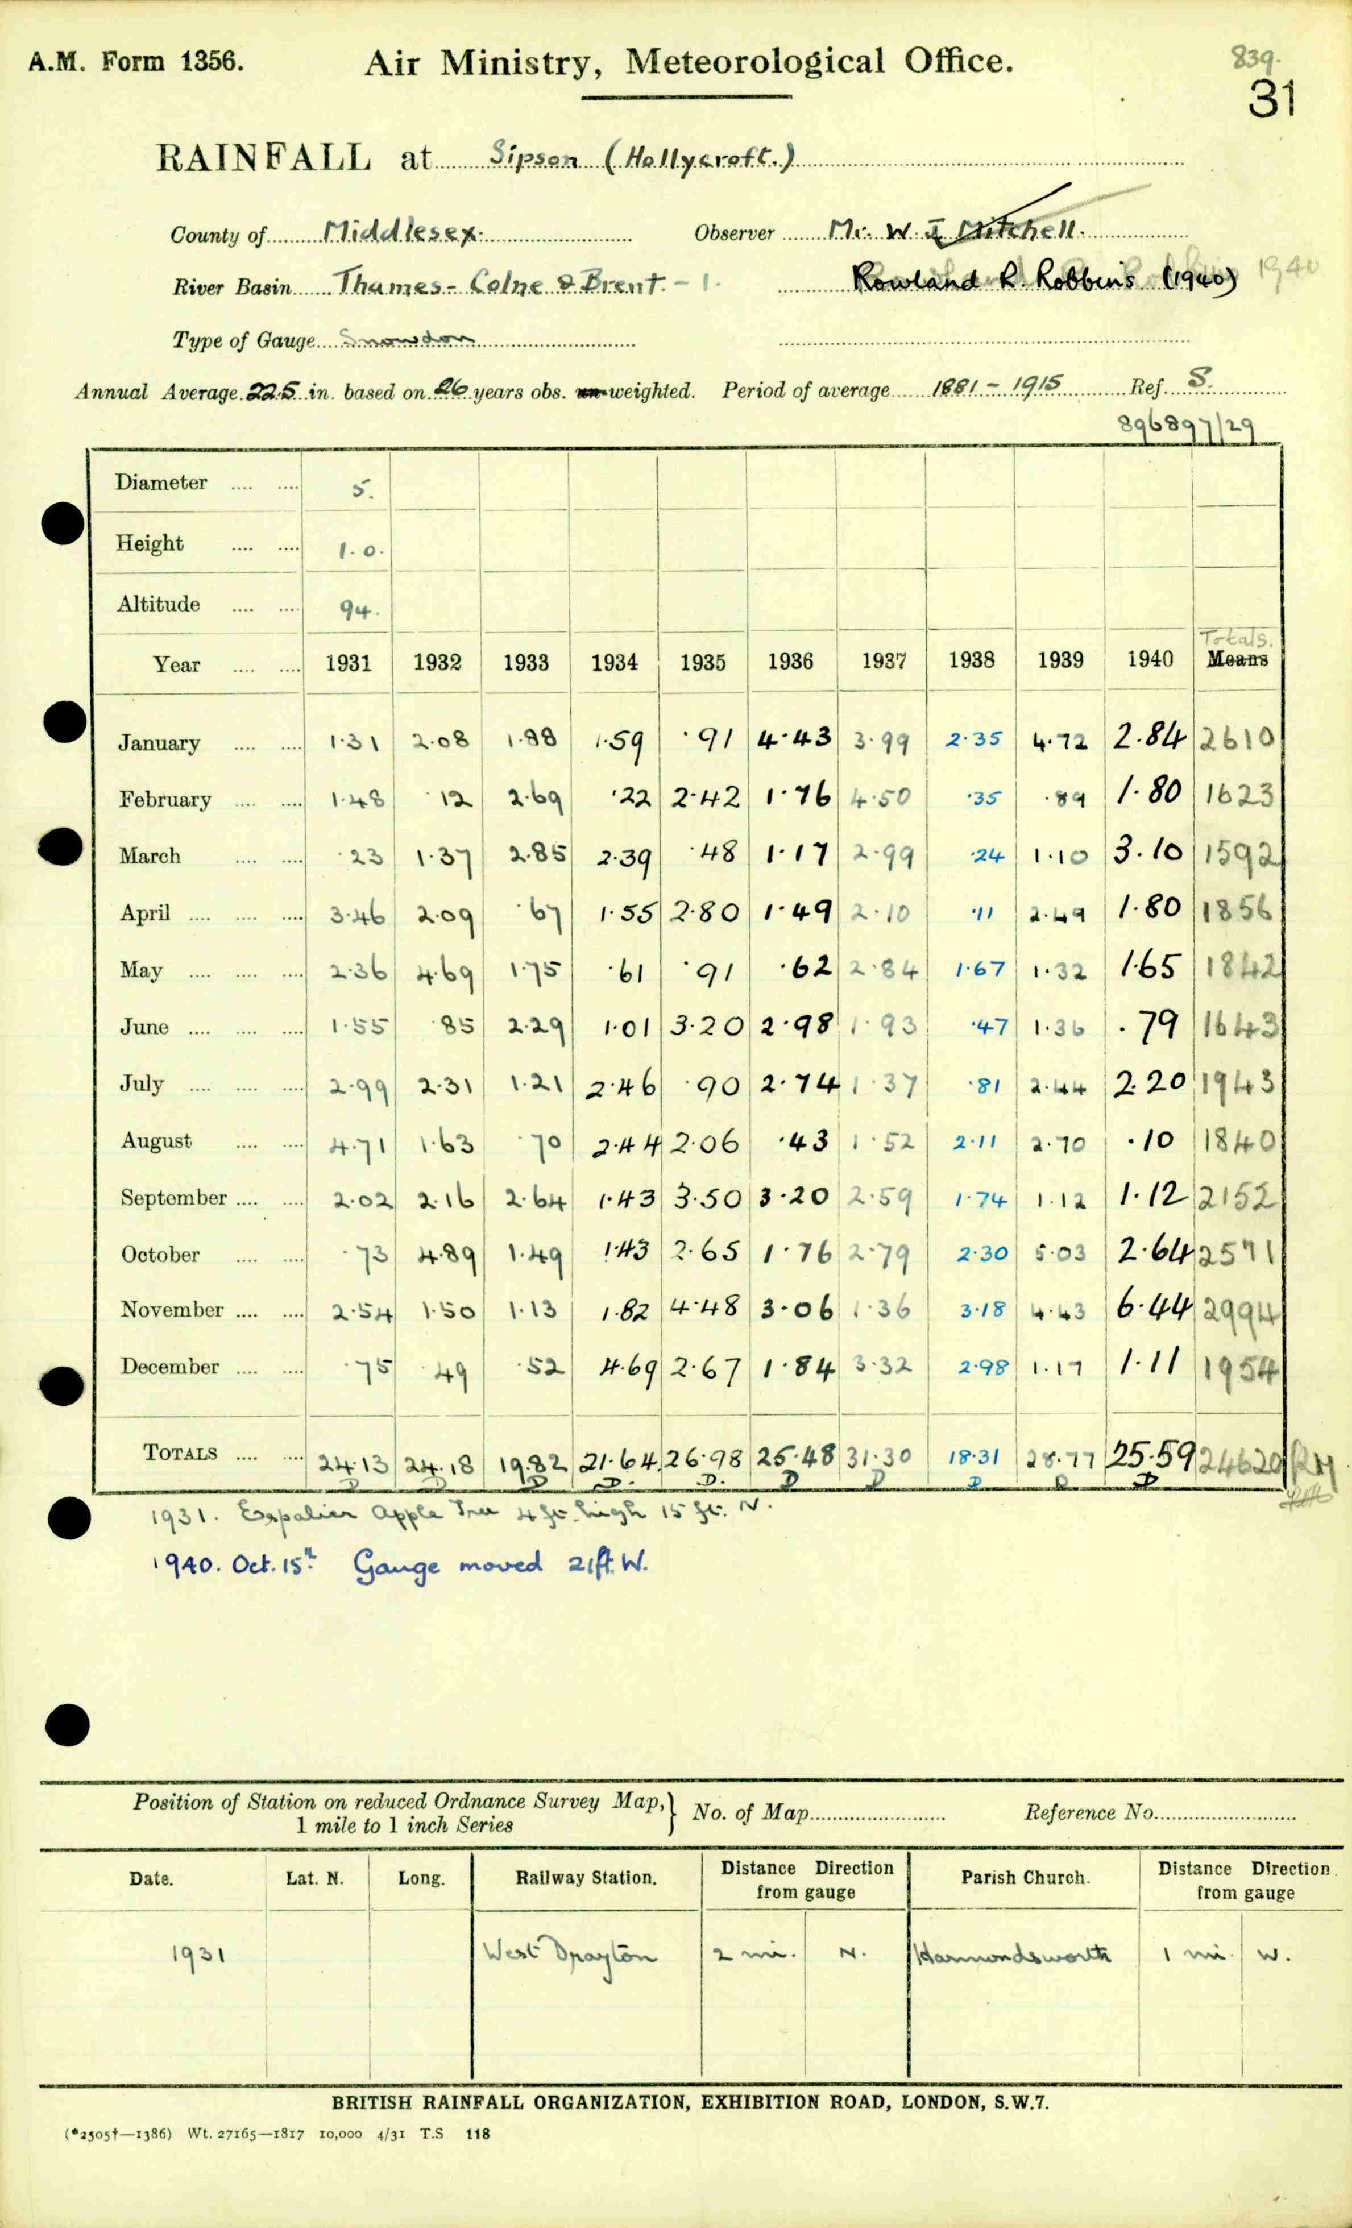 A.M. Form 1356. Air Ministry, Meteorological Office. 839.
31
RAINFALL at Sipson (Hollycroft.)
County of Middlesex. Observer Mr. W. J. Mitchell.
River Basin Thames - Colne & Brent. - 1. Rowland R. Robbins (1940) 1940
Type of Gauge Snowdon
Annual Average 22.5 in. based on 26 years obs. un-weighted. Period of average 1881 - 1915 Ref. S.
896897/29
Diameter .... .... 5.
Height .... .... 1.0.
Altitude .... .... 94.
Totals.
Year .... .... 1931 1932 1933 1934 1935 1936 1937 1938 1939 1940 Means
January .... .... 1.31 2.08 1.88 1.59 .91 4.43 3.99 2.35 4.72 2.84 2610
February .... .... 1.48 .12 2.69 .22 2.42 1.76 4.50 .35 .89 1.80 1623
March .... .... .23 1.37 2.85 2.39 .48 1.17 2.99 .24 1.10 3.10 1592
April .... .... .... 3.46 2.09 .67 1.55 2.80 1.49 2.10 .11 2.49 1.80 1856
May .... .... .... 2.36 4.69 1.75 .61 .91 .62 2.84 1.67 1.32 1.65 1842
June .... .... .... 1.55 .85 2.29 1.01 3.20 2.98 1.93 .47 1.36 .79 1643
July .... .... .... 2.99 2.31 1.21 2.46 .90 2.74 1.37 .81 2.44 2.20 1943
August .... .... 4.71 1.63 .70 2.44 2.06 .43 1.52 2.11 2.70 .10 1840
September .... .... 2.02 2.16 2.64 1.43 3.50 3.20 2.59 1.74 1.12 1.12 2152
October .... .... .73 4.89 1.49 1.43 2.65 1.76 2.79 2.30 5.03 2.64 2571
November .... .... 2.54 1.50 1.13 1.82 4.48 3.06 1.36 3.18 4.43 6.44 2994
December .... .... .75 .49 .52 4.69 2.67 1.84 3.32 2.98 1.17 1.11 1954
TOTALS .... .... 24.13 24.18 19.82 21.64 26.98 25.48 31.30 18.31 28.77 25.59 24620 RM
D D D D. D. D D D D D
1931. Espalier Apple Tree 4 ft. high 15 ft. N.
1940. Oct. 15th Gauge moved 21ft. W.
Position of Station on reduced Ordnance Survey Map, 1 mile to 1 inch Series } No. of Map Reference No.
Date. Lat. N. Long. Railway Station. Distance Direction from gauge Parish Church. Distance Direction from gauge
1931 West Drayton 2 mi. N. Harmondsworth 1 mi. W.
BRITISH RAINFALL ORGANIZATION, EXHIBITION ROAD, LONDON, S.W.7.
(*2505†—1386) Wt. 27165—1817 10,000 4/31 T.S 118